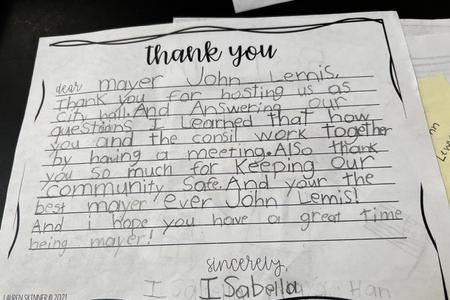 thank you
dear mayer John Lernis,
Thank you for hosting us as
City hall. And Answering our
questoons I Learned that how
you and the consil work together
by having a meeting. Also thank
you so much for Keeping Our
community Safe. And your the
best mayer ever John Lernis!
And i hope you have a great time
being mayer!
sincerely,
ISabella
LAUREN SKINNER © 2021